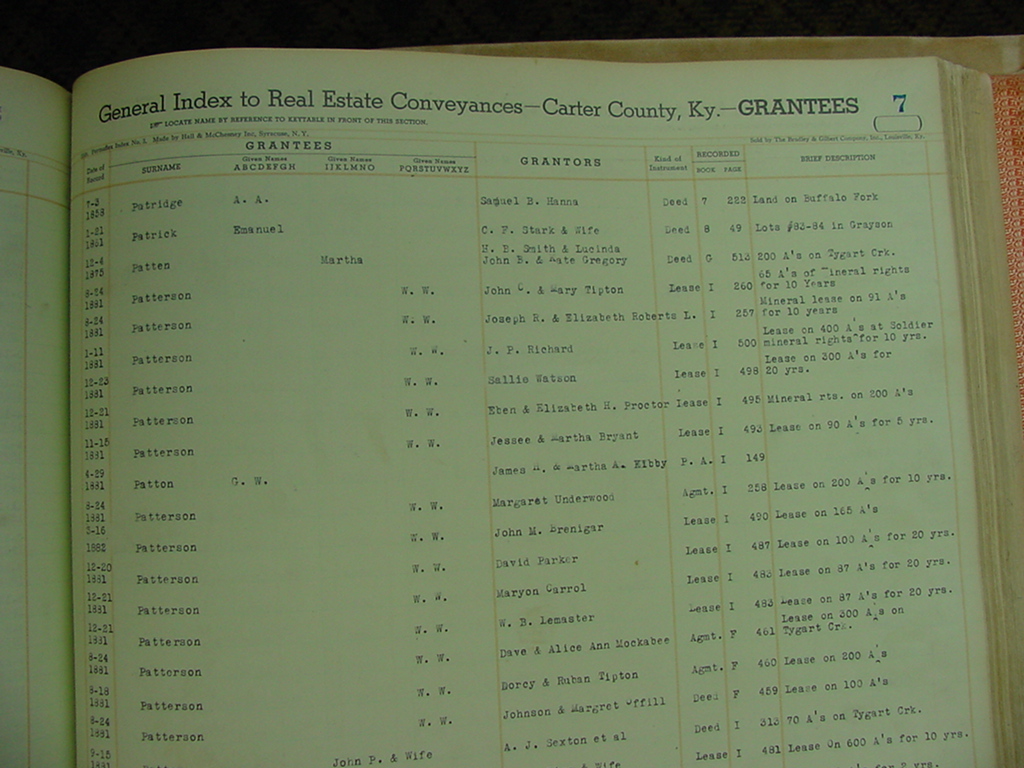 General Index to Real Estate Conveyances—Carter County, Ky.—GRANTEES 7
LOCATE NAME BY REFERENCE TO KEYTABLE IN FRONT OF THIS SECTION.
Index No. 5. Made by Hall & McChesney Inc, Syracuse, N. Y. Sold by The Bradley & Gilbert Company, Inc., Louisville, Ky.
GRANTEES
Date of Record SURNAME Given Names ABCDEFGH Given Names IJKLMNO Given Names PQRSTUVWXYZ GRANTORS Kind of Instrument RECORDED BOOK PAGE BRIEF DESCRIPTION
7-3 1858 Patridge A. A. Samuel B. Hanna Deed 7 222 Land on Buffalo Fork
1-21 Patrick Emanuel C. F. Stark & Wife Deed 8 49 Lots #83-84 in Grayson
H. B. Smith & Lucinda
12-4 1875 Patten Martha John B. & Kate Gregory Deed G 513 200 A's on Tygart Crk.
65 A's of Mineral rights
8-24 1881 Patterson W. W. John C. & Mary Tipton Lease I 260 for 10 Years
Mineral lease on 91 A's
8-24 1881 Patterson W. W. Joseph R. & Elizabeth Roberts L. I 257 for 10 years
Lease on 400 A's at Soldier
1-11 1881 Patterson W. W. J. P. Richard Lease I 500 mineral rights for 10 yrs.
Lease on 300 A's for
12-23 1881 Patterson W. W. Sallie Watson Lease I 498 20 yrs.
12-21 1881 Patterson W. W. Eben & Elizabeth H. Proctor Lease I 495 Mineral rts. on 200 A's
11-15 1881 Patterson W. W. Jessee & Martha Bryant Lease I 493 Lease on 90 A's for 5 yrs.
4-29 1881 Patton G. W. James H. & Martha A. Kibby P. A. I 149
8-24 1881 Patterson W. W. Margaret Underwood Agmt. I 258 Lease on 200 A's for 10 yrs.
2-16 1882 Patterson W. W. John M. Brenigar Lease I 490 Lease on 165 A's
12-20 1881 Patterson W. W. David Parker Lease I 487 Lease on 100 A's for 20 yrs.
12-21 1881 Patterson W. W. Maryon Carrol Lease I 485 Lease on 87 A's for 20 yrs.
12-21 1881 Patterson W. W. W. B. Lemaster Lease I 483 Lease on 87 A's for 20 yrs.
Lease on 300 A's on
8-24 1881 Patterson W. W. Dave & Alice Ann Mockabee Agmt. F 461 Tygart Crk.
8-18 1881 Patterson W. W. Dorcy & Ruban Tipton Agmt. F 460 Lease on 200 A's
8-24 1881 Patterson W. W. Johnson & Margret Offill Deed F 459 Lease on 100 A's
9-15 1881 John P. & Wife A. J. Sexton et al Deed I 313 70 A's on Tygart Crk.
& Wife Lease I 481 Lease On 600 A's for 10 yrs.
for 2 yrs.